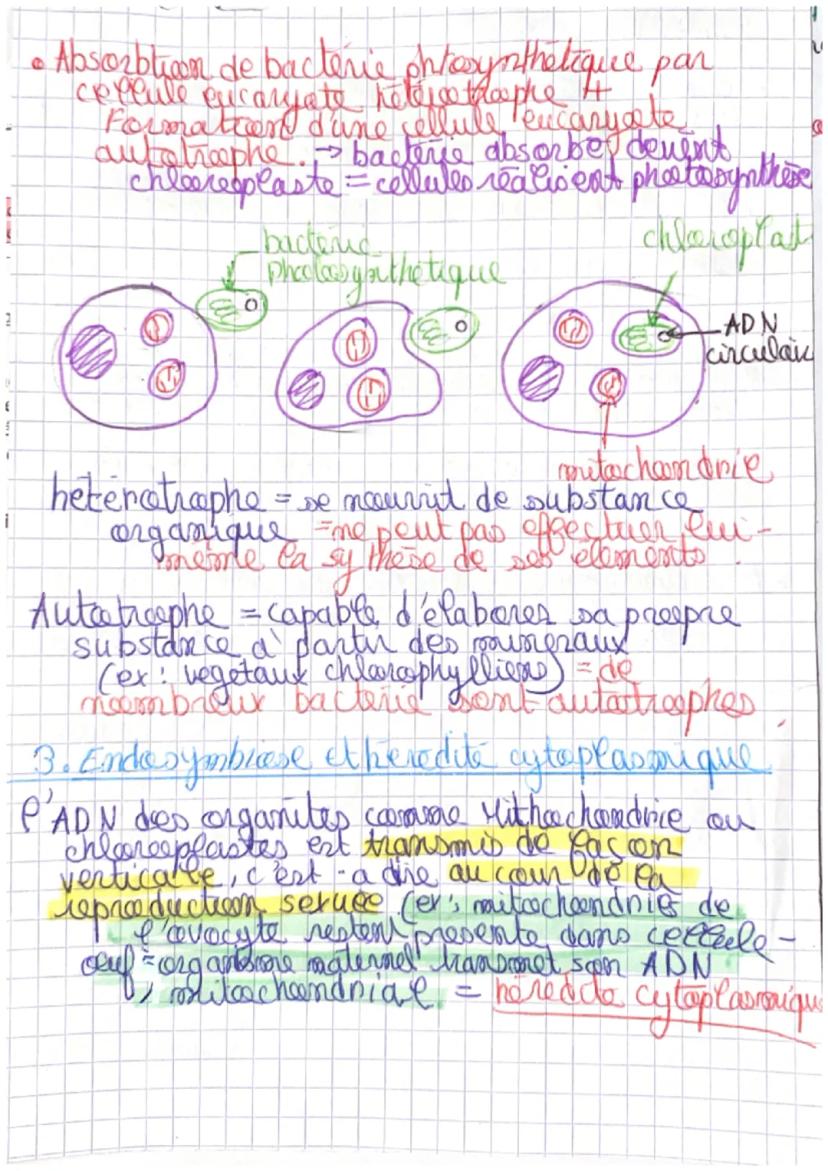 • Absorbtion de bactérie photosynthétique par
cellule eucaryote hétérotrophe +
Formation d'une cellule eucaryote
autotrophe. → bactérie absorbe, devient
chloroplaste = cellules réalisent photosynthèse
bactérie
photosynthétique
chloroplast
ADN
circulaire
mitochondrie
hétérotrophe = se nourrit de substance
organique = ne peut pas effectuer lui-
même la sythèse de ses elements.
Autotrophe = capable d'élaborer sa propre
substance à partir des mineraux
(ex: vegetaux chlorophylliens) = de
nombreux bacterie sont autotrophes
3. Endosymbiose et hérédité cytoplasmique
l'ADN des organites comme Mithochondrie ou
chloroplastes est transmis de façon
verticale, c'est-a dire au cour de la
reproduction sexuée (ex: mitochondries de
l'ovocyte restent presente dans cellule-
oeuf = organisme maternel transmet son ADN
mitochondrial = hérédité cytoplasmique